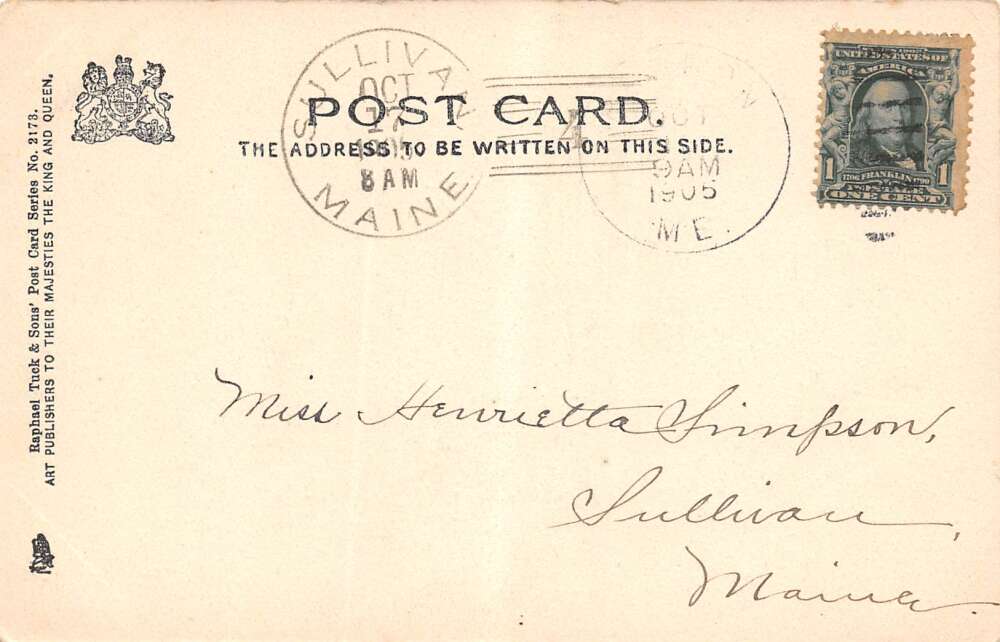 Raphael Tuck & Sons' Post Card Series No. 2173.
ART PUBLISHERS TO THEIR MAJESTIES THE KING AND QUEEN.
SULLIVAN
OCT
1905
8 AM
MAINE
POST CARD.
THE ADDRESS TO BE WRITTEN ON THIS SIDE.
4
OCT
9AM
1905
ME.
UNITED STATES OF
AMERICA
1 1706 FRANKLIN 1790 1
POSTAGE
ONE CENT
Miss Henrietta Simpson,
Sullivan,
Maine.